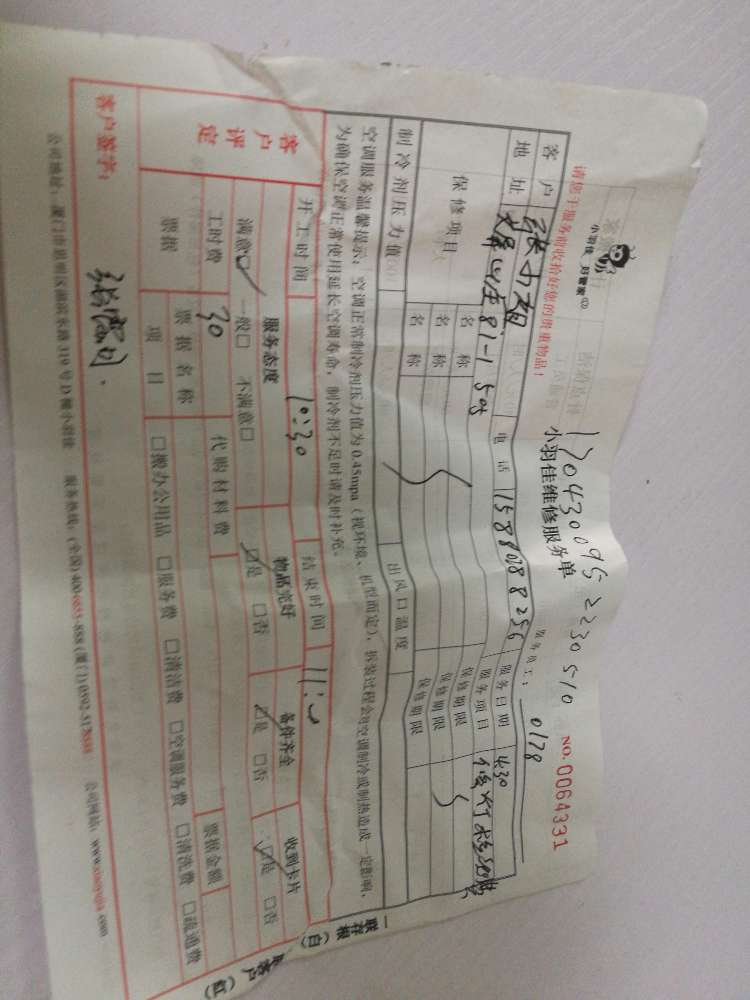 小羽佳 好管家
1704300952230510
小羽佳维修服务单
NO.0064331
请您于服务前收拾好您的贵重物品!
服务员工: 0178
客户 张小姐 电话 15880288256 服务日期 4.30
地址 8i-1 508 服务项目 修灯
保修项目 名称 保修期限
名称 保修期限
名称 保修期限
制冷剂压力值 出风口温度
空调服务温馨提示:空调正常制冷剂压力值为0.45mpa(视环境、机型而定),拆装过程会对空调制冷或制热造成一定影响,
为确保空调正常使用延长空调寿命,制冷剂不足时请及时补充。
开工时间 10:30 结束时间
客户评定 服务态度 物品完好 备件齐全 收到卡片
满意□ 一般□ 不满意□ □是 □否 □是 □否 □是 □否
工时费 30 代购材料费 票据金额
票据 票据名称
项目 □搬办公用品 □服务费 □清洁费 □空调服务费 □清洗费 □疏通费
客户签字:
公司地址:厦门市思明区湖滨东路319号D幢小羽佳 服务热线:(全国)400 (厦门)0592 公司网站:www.xiaoyujia.com
一联存根(白)
客户(红)